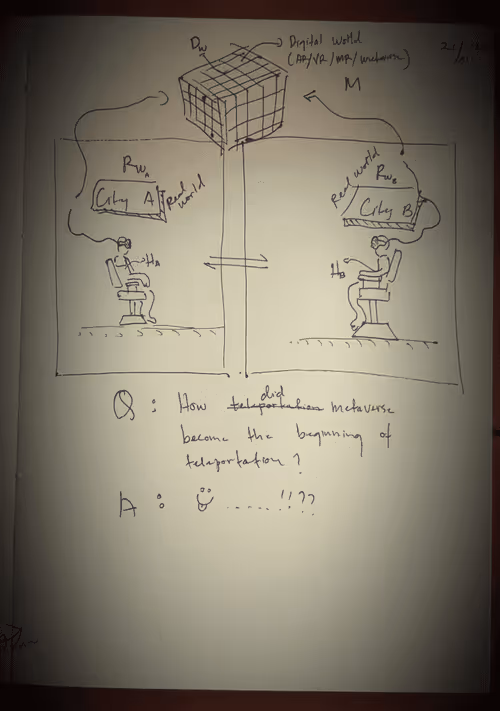 Dw
Digital world
(AR/VR/MR/metaverse)
M
RwA
City A
Real world
HA
Real world
RwB
City B
HB
Q : How teleportation did metaverse
become the beginning of
teleportation ?
A : ........!!??